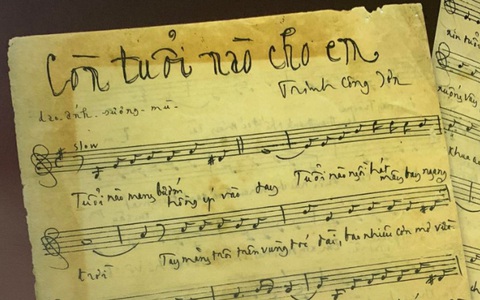 Còn tuổi nào cho em
Trịnh Công Sơn
dao - ánh - sương - mù -
slow
Tuổi nào mang bướm hồng ép vào Tuổi nào ngồi hát mây bay ngang
trời Tay măng trôi trên vùng tóc dài, bao nhiêu cơn mơ vừa